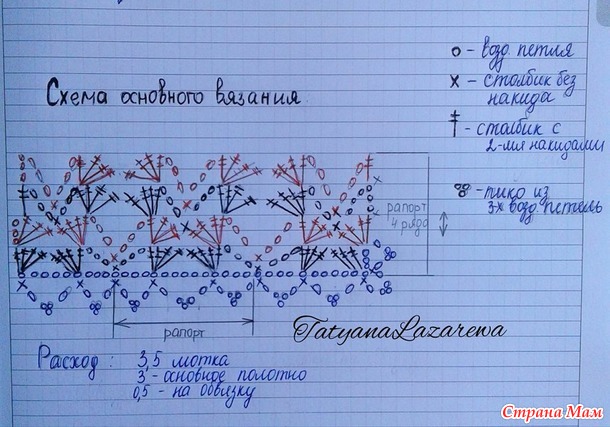 о - возд. петля
х - столбик без
накида
- столбик с
2-мя накидами
- пико из
3-х возд. петель
Схема основного вязания.
рапорт
4 ряда
рапорт
TatyanaLazarewa
Расход: 3,5 мотка
3 - основное полотно
0,5 - на обвязку
Страна Мам